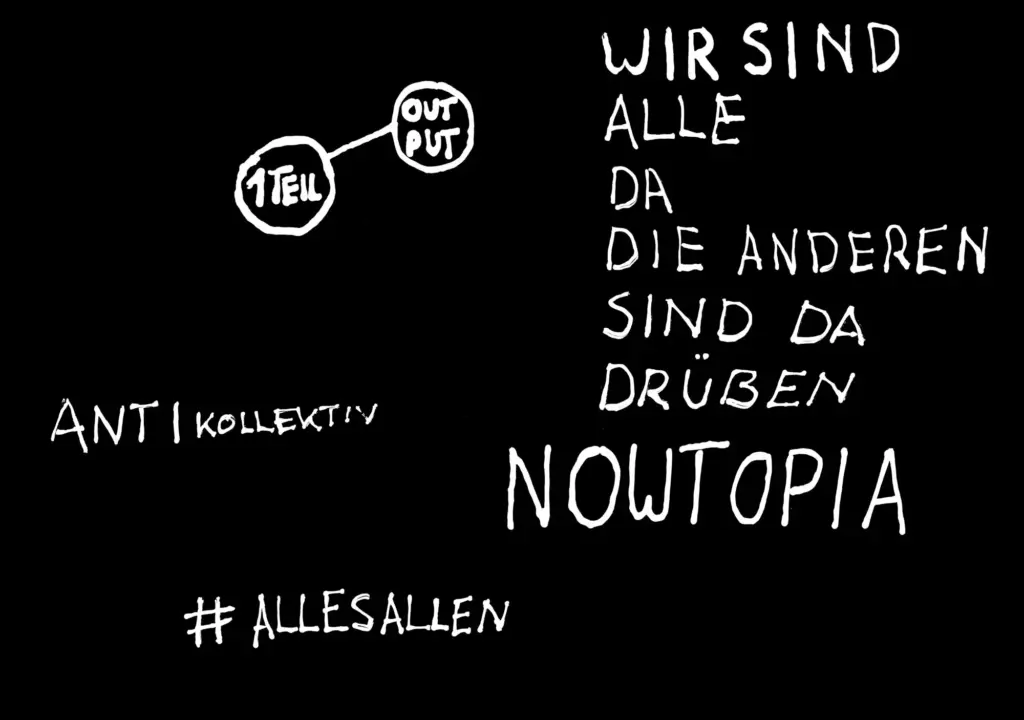 OUT
PUT
1TEIL
ANTIKOLLEKTIV
#ALLESALLEN
WIR SIND
ALLE
DA
DIE ANDEREN
SIND DA
DRÜBEN
NOWTOPIA